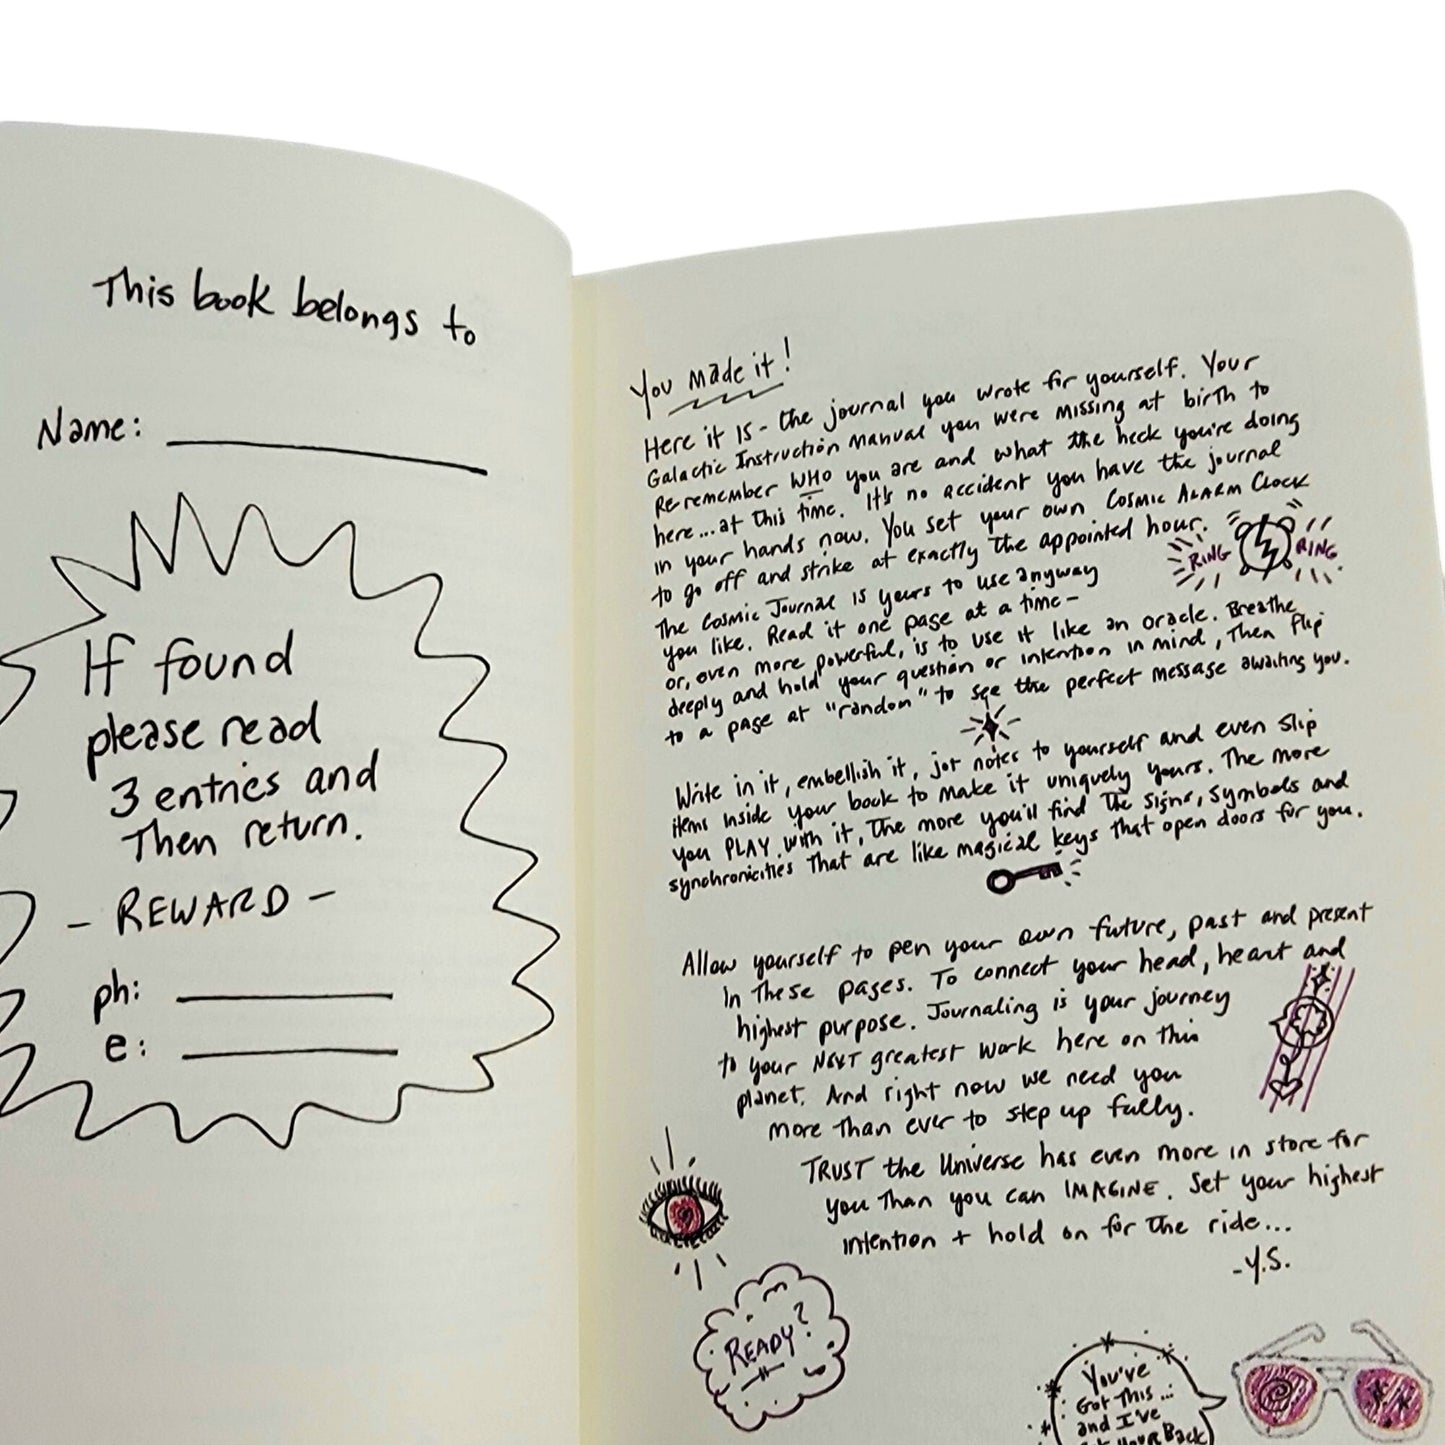 This book belongs to
Name:
If found
please read
3 entries and
Then return.
- REWARD -
ph:
e:
You made it!
Here it is - the journal you wrote for yourself. Your
Galactic Instruction Manual you were missing at birth to
Re-remember WHO you are and what the heck you're doing
here... at this time. It's no accident you have the journal
in your hands now. You set your own Cosmic Alarm Clock
to go off and strike at exactly the appointed hour.
RING
RING
The Cosmic Journal is yours to use anyway
you like. Read it one page at a time -
or, even more powerful, is to use it like an oracle. Breathe
deeply and hold your question or intention in mind, Then flip
to a page at "random" to see the perfect message awaiting you.
Write in it, embellish it, jot notes to yourself and even slip
items inside your book to make it uniquely yours. The more
you PLAY with it, The more you'll find The signs, symbols and
synchronicities That are like magical keys That open doors for you.
Allow yourself to pen your own future, past and present
In These pages. To connect your head, heart and
highest purpose. Journaling is your journey
to your NEXT greatest work here on this
planet. And right now we need you
more Than ever to step up fully.
TRUST the Universe has even more in store for
you Than you can IMAGINE. Set your highest
intention + hold on for The ride...
-Y.S.
READY?
You've
Got This...
and I've
Your Back